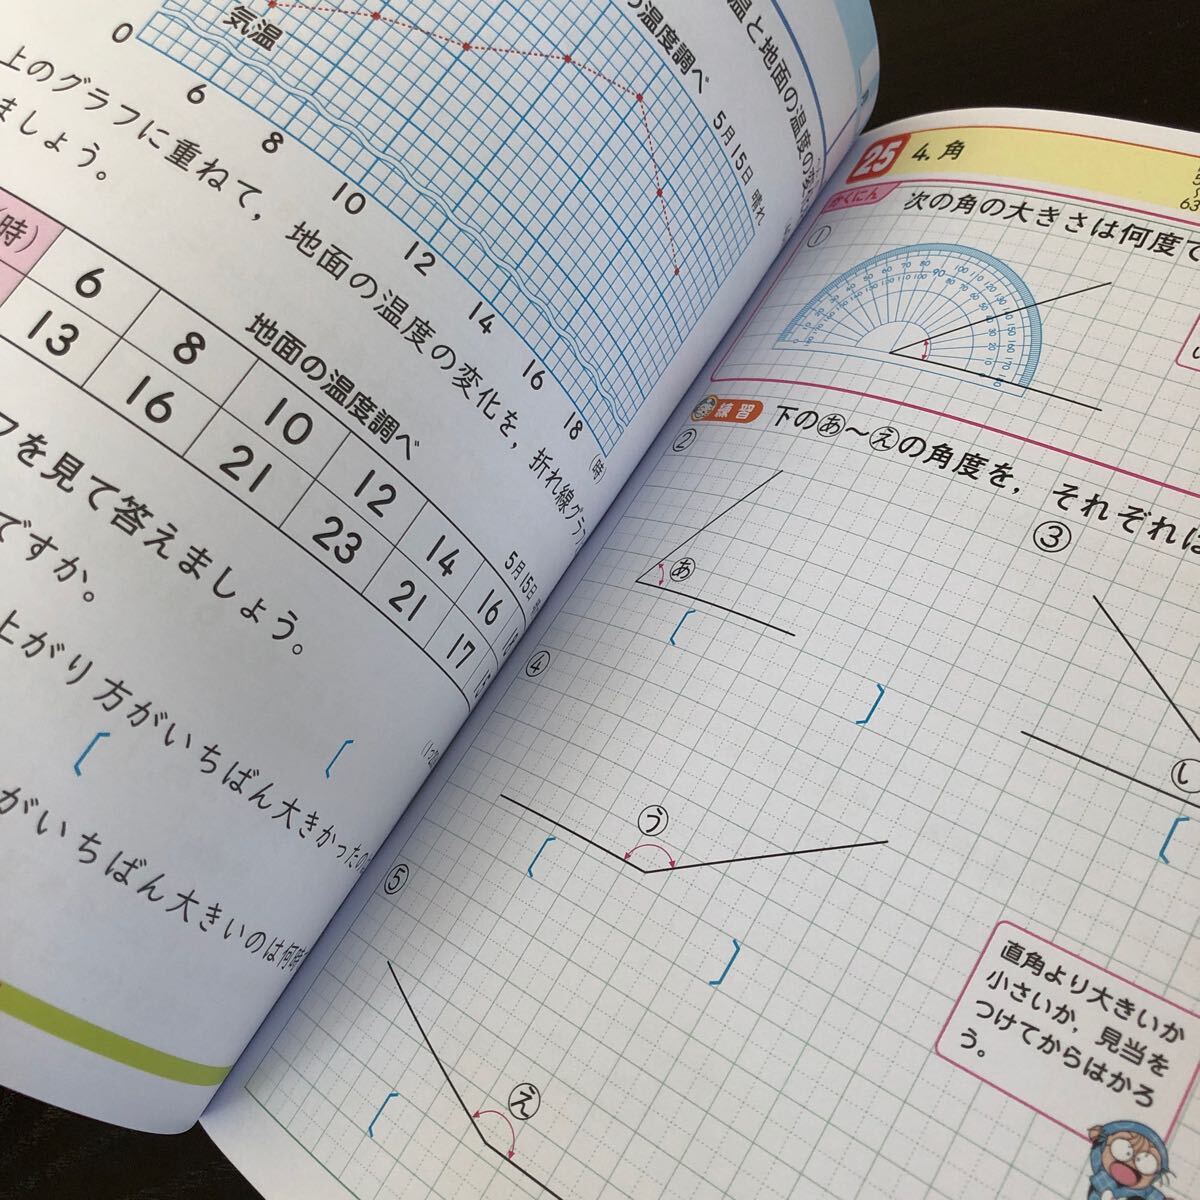 温と地面の温度の変
温度調べ
5月15日 晴れ
気温
0
6
8
10
12
14
16
18
(時)
上のグラフに重ねて，地面の温度の変化を，折れ線グラフ
ましょう。
地面の温度調べ
5月15日
(時) 6 8 10 12 14 16
13 16 21 23 21 17
を見て答えましょう。
ですか。
上がり方がいちばん大きかったの
がいちばん大きいのは何時
25 4. 角
かくにん
次の角の大きさは何度で
①
練習
下のあ〜えの角度を，それぞれは
②
あ
③
い
④
う
⑤
え
直角より大きいか
小さいか，見当を
つけてからはかろ
う。